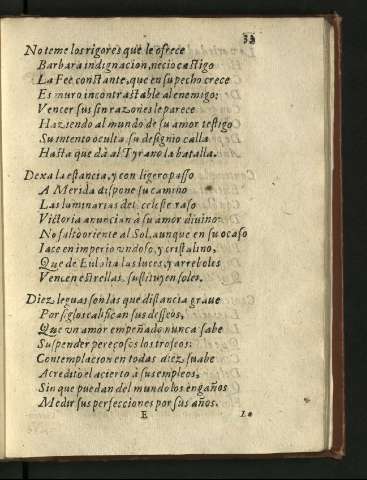 33
No teme los rigores que le ofrece
Barbara indignacion, necio castigo
La Fee constante, que en su pecho crece
Es muro incontrastable al enemigo:
Vencer sus sin razones le parece
Haziendo al mundo de su amor testigo
Su intento oculta, su designio calla
Hasta que dà al Tyrano la batalla.
Dexa la estancia, y con ligero passo
A Merida dispone su camino
Las luminarias del celeste raso
Victoria anuncian à su amor divino:
No saliò oriente al Sol, aunque en su ocaso
Iace en imperio vndoso, y cristalino,
Que de Eulalia las luces, y arreboles
Vencen estrellas, sustituyen soles.
Diez leguas son las que distancia graue
Por siglos califican sus desseos,
Que vn amor empeñado nunca sabe
Suspender pereçosos los trofeos:
Contemplacion en todas diez suabe
Acreditò el acierto à sus empleos,
Sin que puedan del mundo los engaños
Medir sus perfecciones por sus años.
E